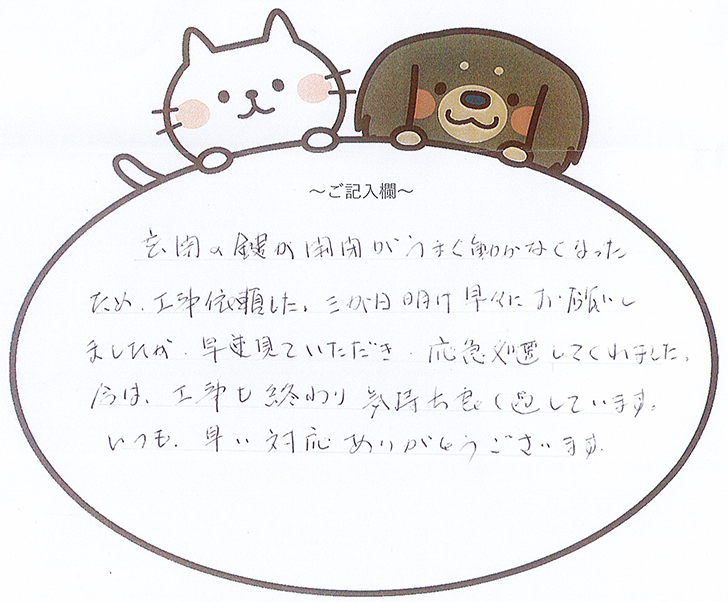 ～ご記入欄～
玄関の鍵が開閉がうまく動かなくなった
ため、工事依頼した。三が日明け早々にお願いし
ましたが、早速見ていただき、応急処置してくれました。
今は、工事も終わり気持ち良く過しています。
いつも、早い対応ありがとうございます。